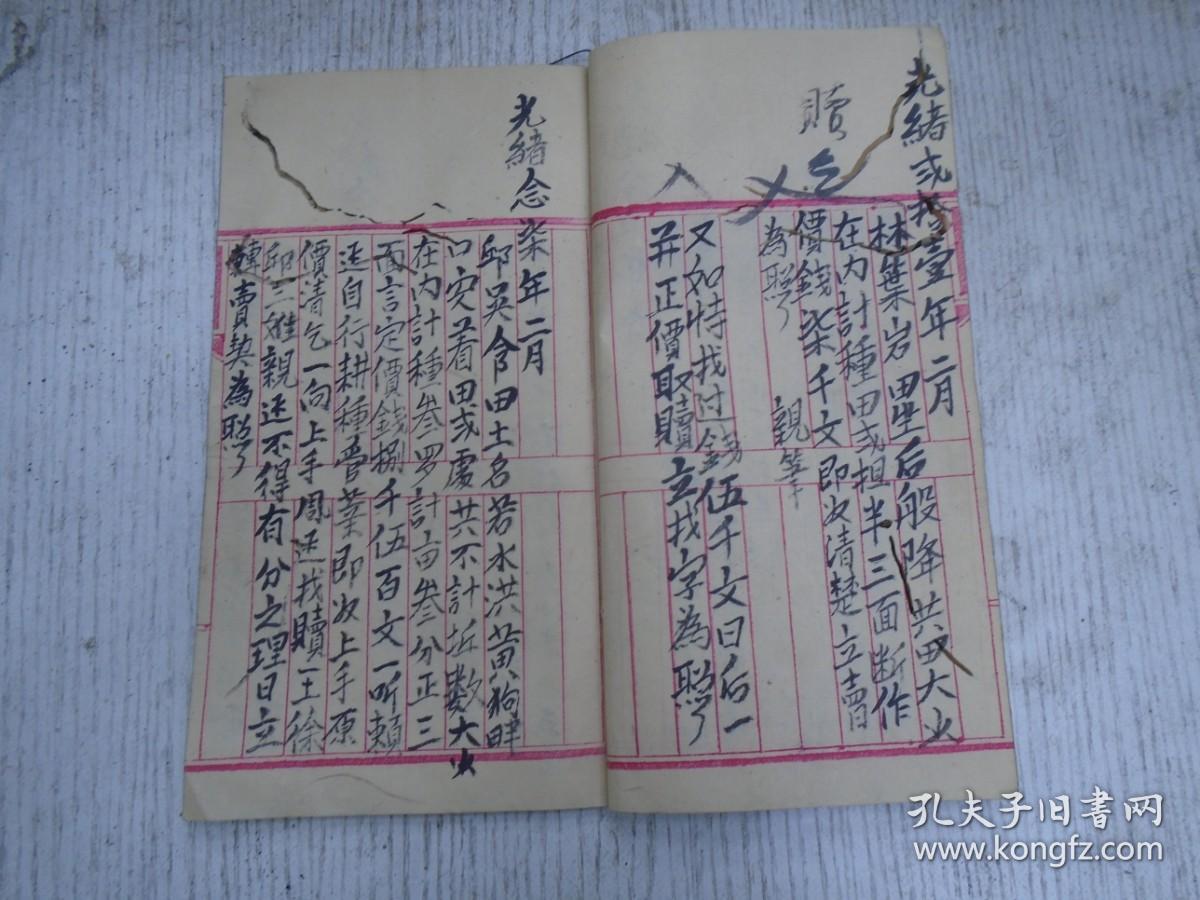 光緒弍拾壹年二月
林葉岩田坐后般降共田大火
在内計種田弍担半三面断作
價錢柒千文即收清楚立賣
為照了 親筆
贖乞
又如恃找过錢伍千文日后一
并正價取贖立找字為照了
光緒念柒年二月
邱吳食田土名若水洪黃狗畔
口安着田弍處共不計坵數大火
在内計種叁罗計亩叁分正三
面言定價錢捌千伍百文一听賴
廷自行耕種管業即收上手原
價清乞一向上手鳳廷找贖一土徐
邱二姓親廷不得有分之理日立
轉賣契為照了
孔夫子旧书网
www.kongfz.com